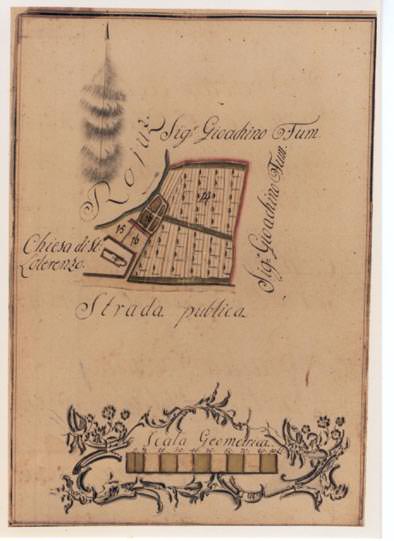 Sig.r Gioachino Tum.
Roiuz
Sig.r Gioachino Tum.
14
15
16
Chiesa di S.t
Lorenzo.
Strada publica.
Scala Geometrica.